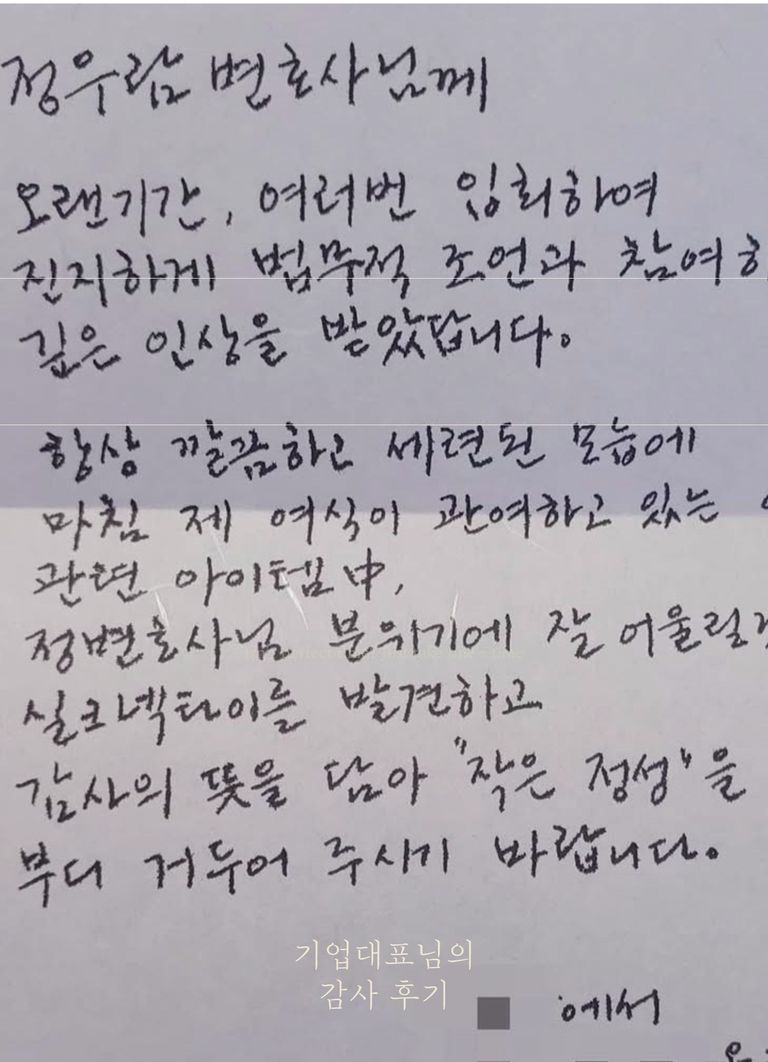 정우람 변호사님께
오랜기간, 여러번 입회하여
진지하게 법무적 조언과 참여하
깊은 인상을 받았답니다.
항상 깔끔하고 세련된 모습에
마침 제 여식이 관여하고 있는
관련 아이템中,
정변호사님 분위기에 잘 어울릴
실크넥타이를 발견하고
감사의 뜻을 담아 "작은 정성"을
부디 거두어 주시기 바랍니다.
기업대표님의
감사 후기
에서